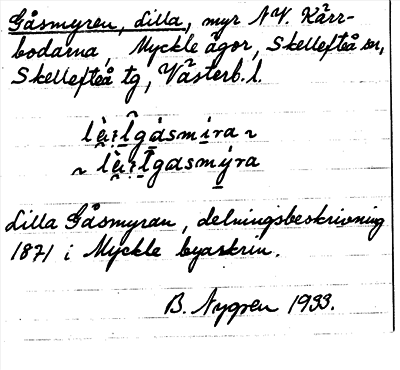 Gåsmyren, Lilla, myr NV. Kärr-
bodarna, Myckle ägor, Skellefteå sn,
Skellefteå tg, Västerb. l.
Lilla Gåsmyran, delningsbeskrivning
1871 i Myckle byaskrin.
B. Nygren 1933.